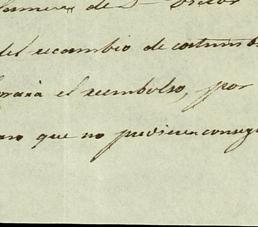 de Dn
del recambio de costumb
el reembolso, por
que no pudiera conseg